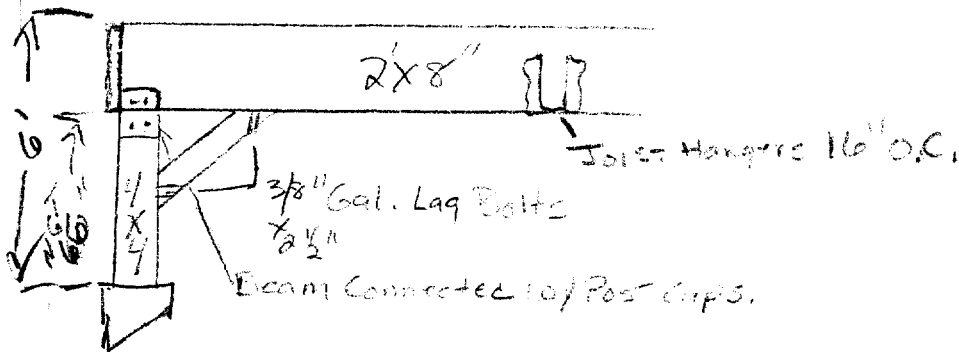 2'x8"
6'
66"
4
X
4
Joist Hangers 16" O.C.
3/8" Gal. Lag Bolts
x 2 1/2"
Beam Connected w/ Post Caps.